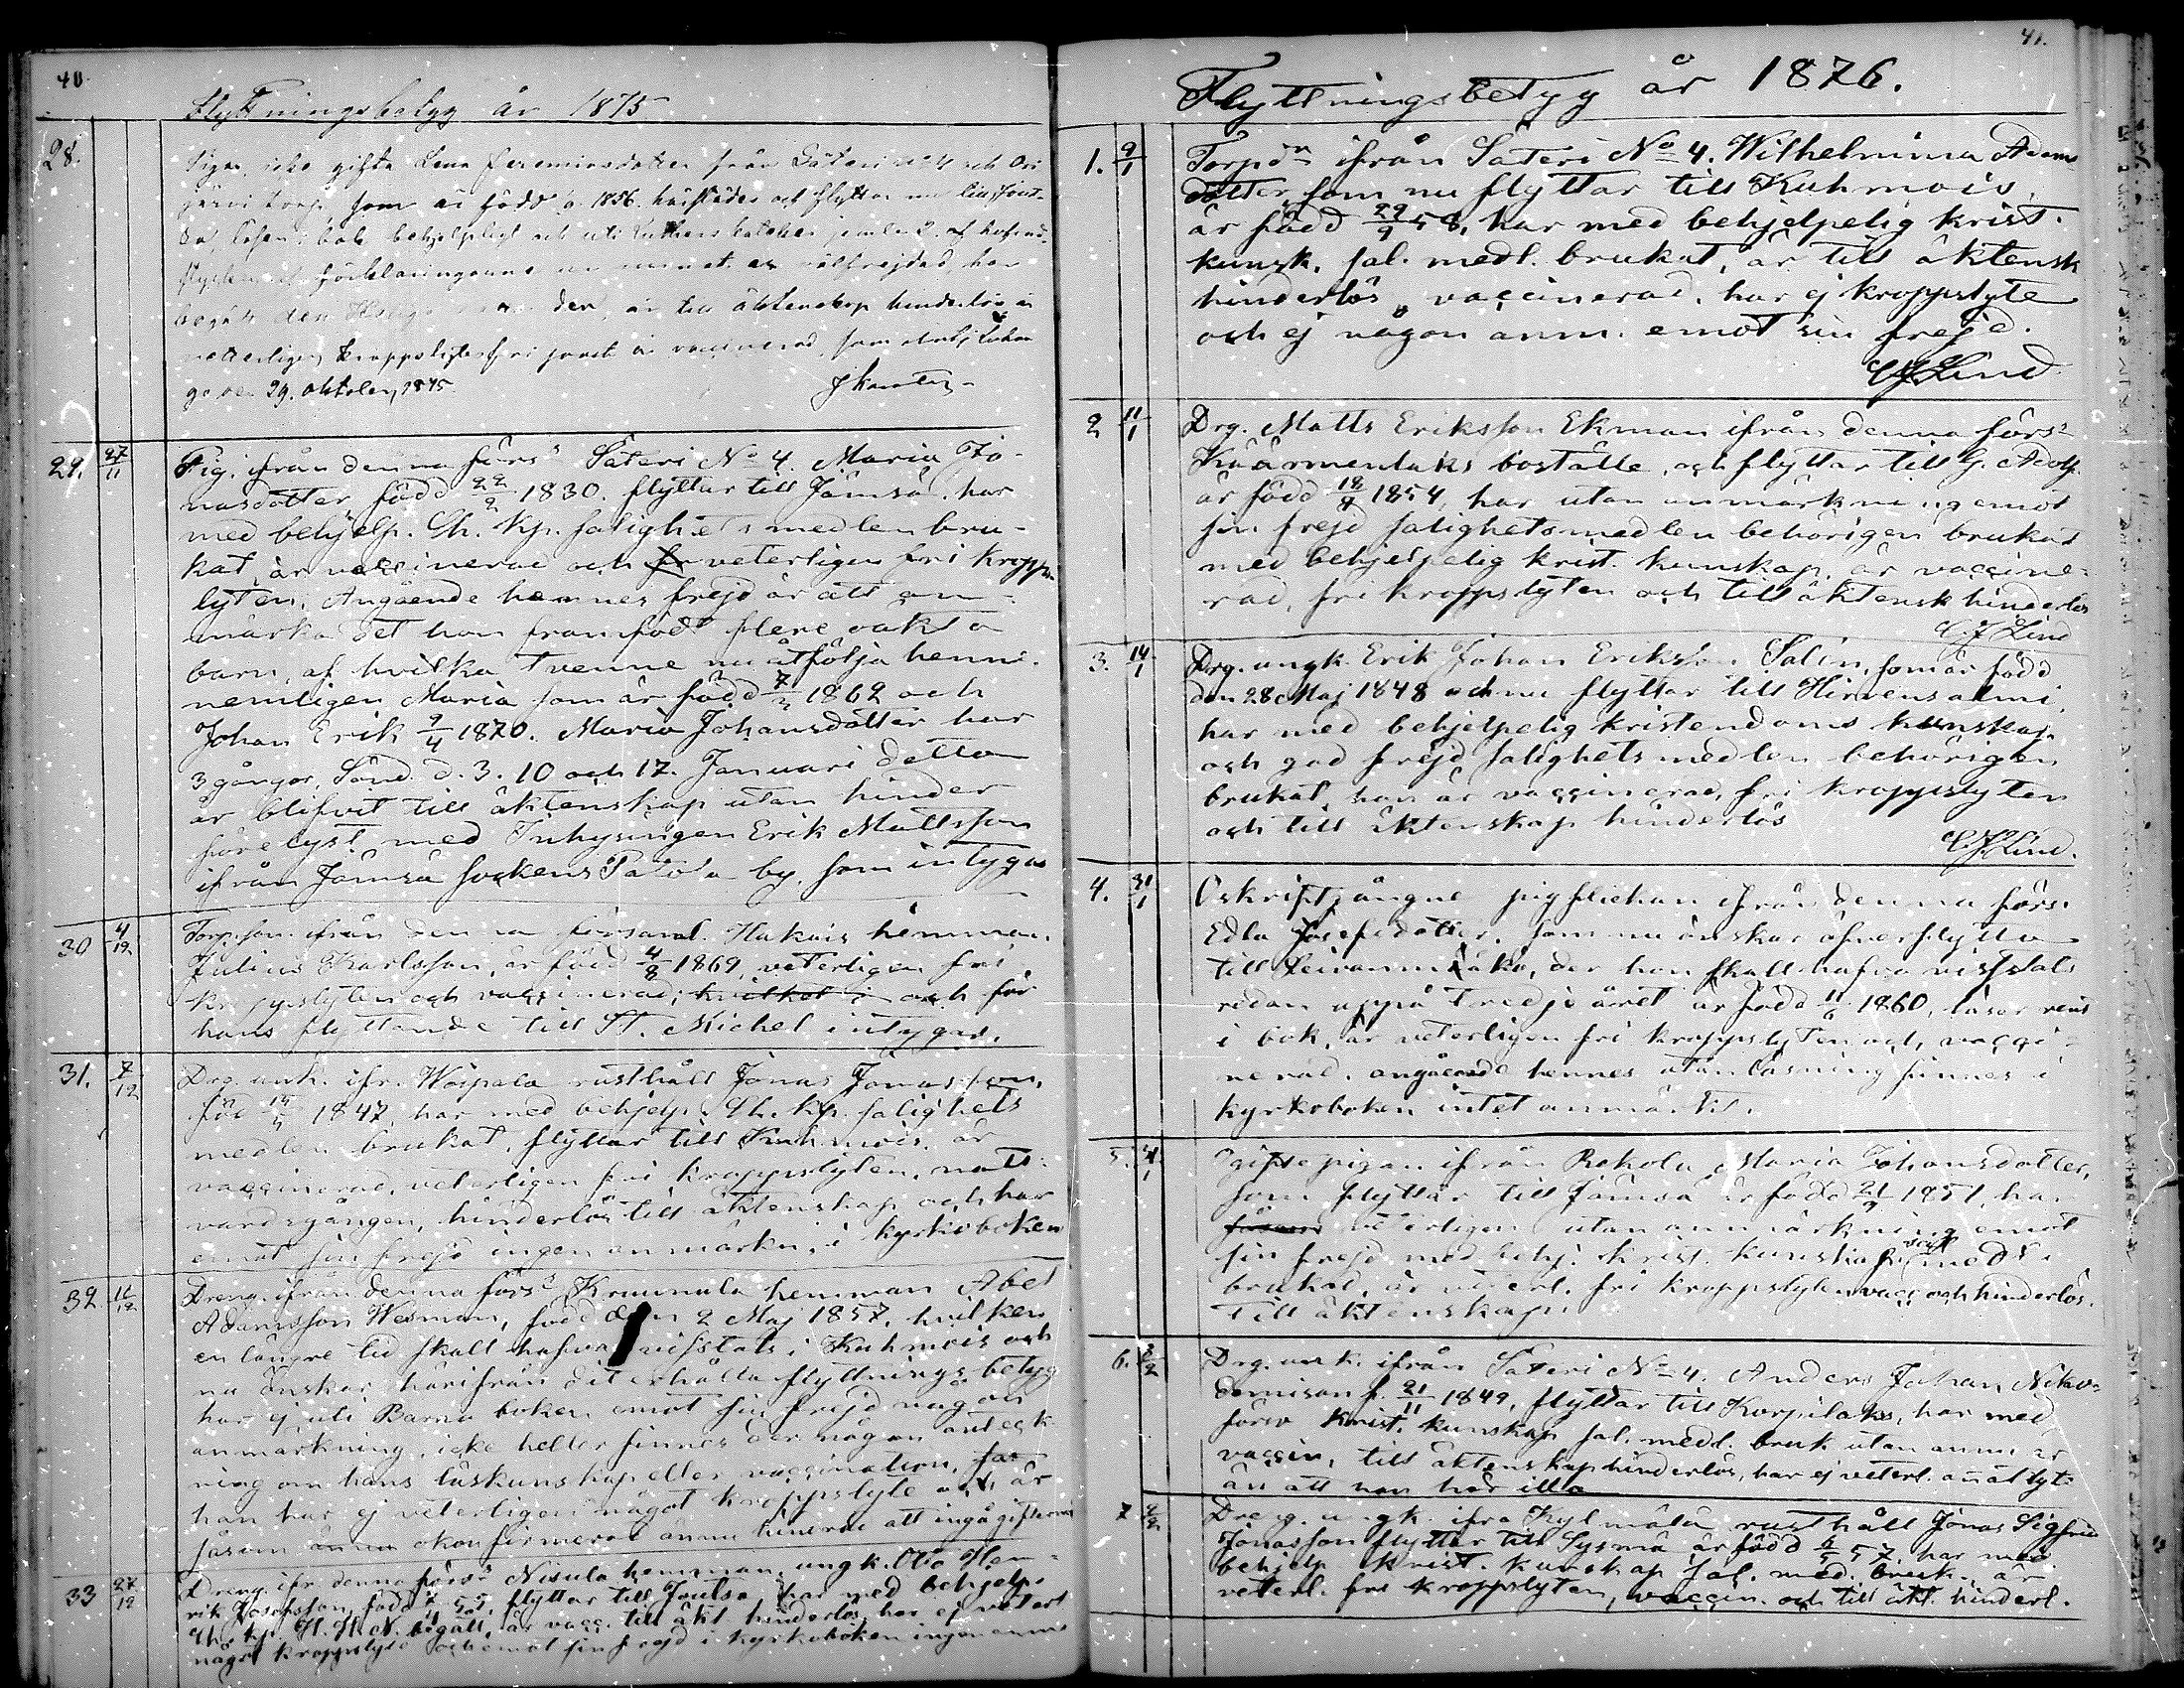 40.
Flyttningsbetyg år 1875
28.
Pigan, icke gifta Lena Jeremiasdotter från Säteri No 4 och Ori
järvi torp, som är född å. 1856. härstädes och flyttar nu
bok behjelpligt och uti Luthers kateches
förklaringarne
begått den Heliga är till äktenskap hinderlös är
vetterligen kroppslytesfri är vaccinerad, som
den 29. oktober, 1875.
29. 27/11
Pig. ifrån denna förs:s Säteri No 4. Maria Jo-
nasdotter född 22/2 1830. flyttar till Jämsä. har
med behjelp. Ch. kp. salighets medlen bru-
kat, är vaccinerad och fr veterligen fri kropps-
lyten. Angående hennes frejd är att an-
märka det hon framfödt flere oäkta
barn, af hvilka tvenne nu åtfölja henne.
nemligen Maria som är född 7/3 1862 och
Johan Erik 9/4 1870. Maria Johansdotter har
3 gångor, Sönd. d. 3. 10 och 17. Januari detta
år blifvit till äktenskap utan hinder
förelyst med Inhysingen Erik Mattsson
ifrån Jämsä sockens Patala by. som intygas
30 4/12
Torp.son. ifrån denna församl. Hakais hemman.
Julius Karlsson, är född 4/8 1869, veterligen fri
kroppslyten och vaccinerad; hvilket i och för
hans flyttande till St. Michel intygas.
31. 7/12
Drg. unk. ifr. Woipala rusthåll Jonas Jonasson,
föd 1847, har med behjelp. Ch. kp. salighets
medlen brukat, flyttar till Kuhmois. är
vaccinerad, veterligen fri kroppslyten. natt-
vardsgången, hinderlös till äktenskap och har
emot sin frejd ingen anmärkn. i kyrkoboken
32. 11/12
Dreng. ifrån denna förs:s Kraunula hemman Abel
Adamsson Wesman, född den 2 Maj 1857. hvilken
en längre tid skall hafva visstats i Kuhmois och
nu önskar härifrån dit erhålla flyttnings betyg
har ej uti Barna boken emot sin frejd någon
anmärkning, icke heller finnes der någon anteck
ning om hans läskunskap eller vaccination. far
han har ej veterligen något kroppslyte och är
såsom ännu okonfirmerad ännu hindrad att ingå giftermål
33 27/12
Dreng. ifr. denna förs:s Nisula hemman. ungk. Otto Hen-
rik Josefsson, född 55. flyttar till Joutsa har med behjelp.
Ch. kp. H. H. N. begått, är vacc. till äkt. hinderlös, har ej veterl
något kroppslyte och emot sin frejd i kyrkoboken ingen anm
41.
Flyttningsbetyg år 1876.
1. 9/1
Torpdn ifrån Säteri No 4. Wilhelmina Adams
dotter, som nu flyttar till Kuhmois,
är född 29/9 58, har med behjelpelig krist.
kunsk. sal. medl. brukat, är till äktensk
hinderlös, vaccinerad, har ej kroppslyte
och ej någon anm. emot sin frejd.
C J Lind
2 11/1
Drg. Matts Eriksson Ekman ifrån denna förs:s
Käärmenlaks boställe, och flyttar till G. Adolf
är född 18/7 1854, har utan anmärkning emot
sin frejd salighetsmedlen behörigen brukat
med behjelpelig krist. kunskap, är vaccine-
rad, fri kroppslyten och till äktensk hinderlös
C J Lind
3. 14/1
Drg. ungk. Erik Johan Eriksson Salin, som är född
den 28 Maj 1848 och nu flyttar till Hirvensalmi,
har med behjelpelig kristendoms kunskap
och god frejd salighets medlen behörigen
brukat, han är vaccinerad, fri kroppslyten
och till äktenskap hinderlös
C. J Lind.
4. 31/1
Oskriftgångne pigflickan ifrån denna förs.
Edla Josefsdotter. som nu önskar öfverflytta
till Leivonmäki, der hon skall hafva visstats
redan uppå tredje året är född 11/6 1860, läser rent
i bok, är veterligen fri kroppslyten och vacci-
nerad. angående hennes utanläsning finnes i
kyrkoboken intet anmärkt.
5. 31/1
Ogifte pigan ifrån Rekola Maria Johansdotter,
som flyttar till Jämsä är född 21/9 1851, har
veterligen utan anmärkning emot
sin frejd med behj. krist. kunskap medl.
brukat, är veterl. fri kroppslyten vacc och hinderlös
till äktenskap.
6. 3/2
Drg. unk. ifrån Säteri No 4. Anders Johan Niko-
demison f. 21/11 1849, flyttar till Korpilaks, har med
förw krist. kunskap sal. medl. bruk. utan anm. är
vaccin, till äktenskap hinderlös, har ej veterl. annat lyt-
än att han hör illa
7
Dreng. ungk. ifrå Kylmälä rusthåll Jonas Sigfrid
Jonasson flyttar till Sysmä är född 57. har med
behjelp. krist. kunskap sal. med. bruk. är
veterl. fri kroppslyten, vaccin. och till äkt. hinderl.